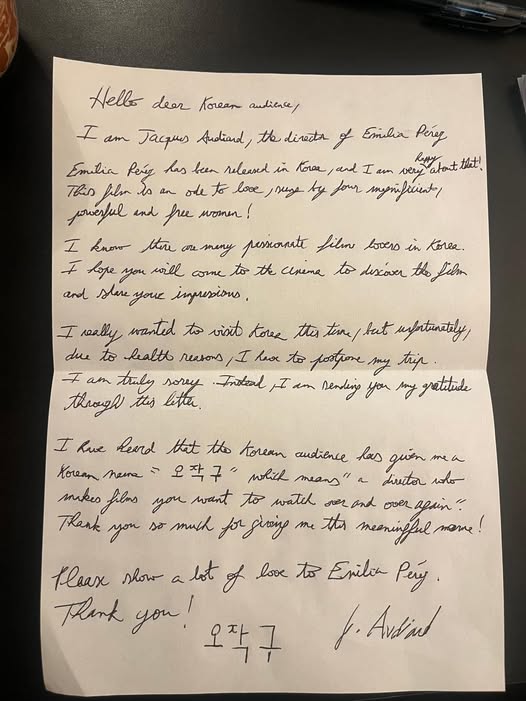 Hello dear Korean audience,
I am Jacques Audiard, the director of Emilia Pérez
Emilia Pérez has been released in Korea, and I am very happy about that!
This film is an ode to love, sung by four magnificent,
powerful and free women!
I know there are many passionate film lovers in Korea.
I hope you will come to the cinema to discover the film
and share your impressions.
I really wanted to visit Korea this time, but unfortunately,
due to health reasons, I have to postpone my trip.
I am truly sorry. Instead, I am sending you my gratitude
through this letter.
I have heard that the Korean audience has given me a
Korean name "오작구" which means "a director who
makes films you want to watch over and over again".
Thank you so much for giving me this meaningful name!
Please show a lot of love to Emilia Pérez.
Thank you!
오작구 J. Audiard